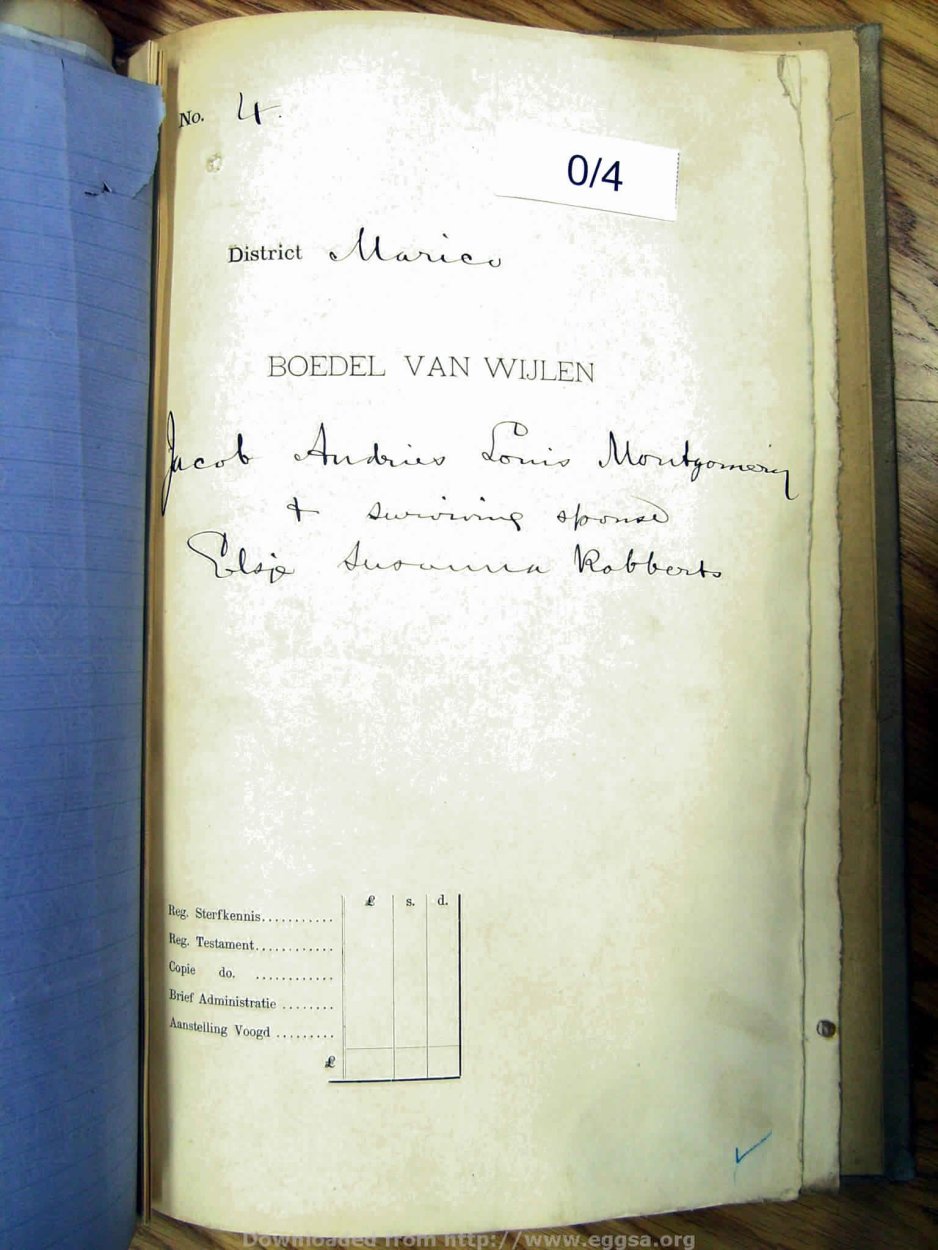 No. 4.
0/4
District Marico
BOEDEL VAN WIJLEN
Jacob Andries Louis Montgomery
+ surviving spouse
Elsje Susanna Robberts
£ s. d.
Reg. Sterfkennis...........
Reg. Testament............
Copie do. ............
Brief Administratie ........
Aanstelling Voogd .........
£
Downloaded from http://www.eggsa.org